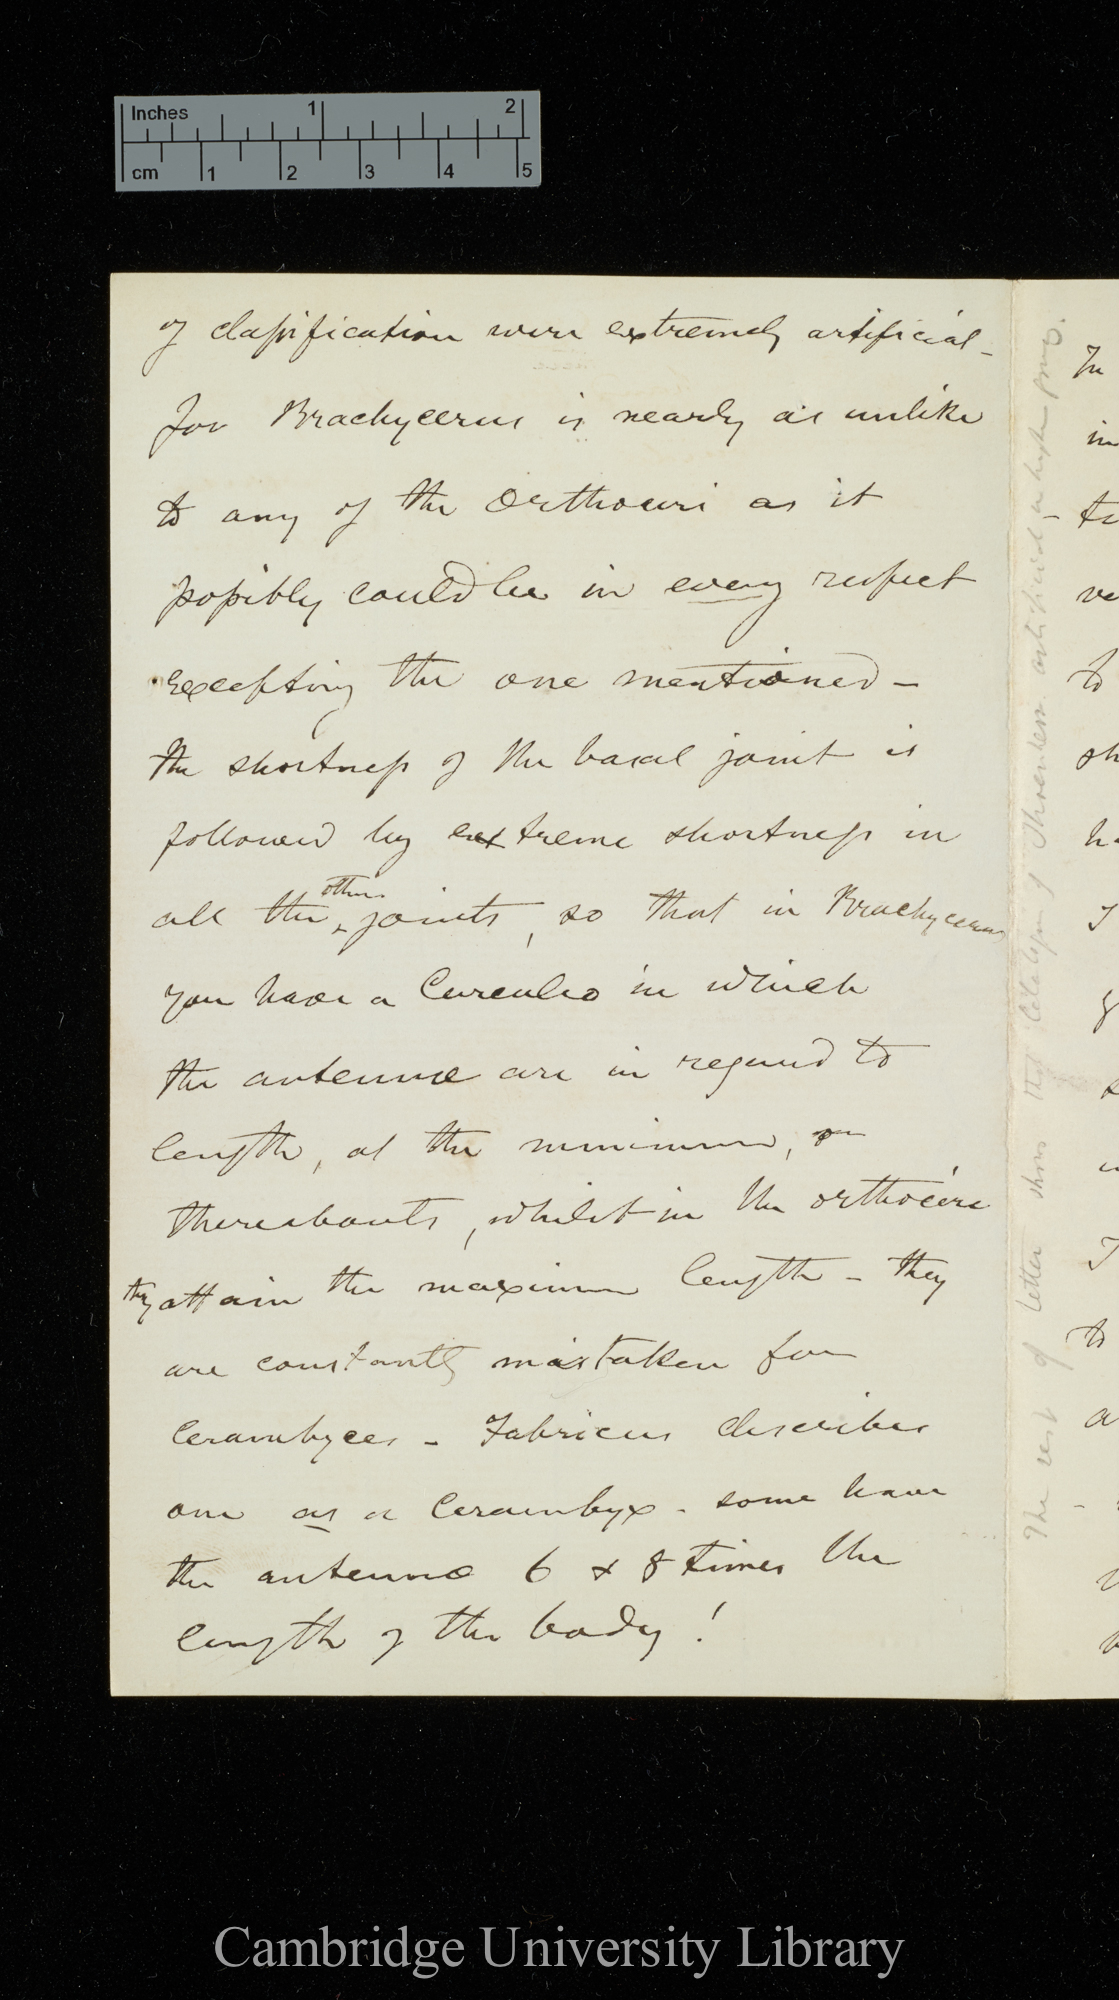 Inches 1 2
cm 1 2 3 4 5
of classification were extremely artificial –
for Brachycerus is nearly as unlike
to any of the Orthoceri as it
possibly could be in every respect
excepting the one mentioned –
the shortness of the basal joint is
followed by extreme shortness in
all the other joints, so that in Brachycerus
you have a Curculio in which
the antennæ are in regard to
length, at the minimum, or
thereabouts, whilst in the orthoceri
they attain the maximum length – they
are constantly mistaken for
Cerambyces – Fabricius describes
one as a Cerambyx – some have
the antennæ 6 & 8 times the
length of the body!
The rest of letter shows that
In
to
sh
I
I
to
Cambridge University Library